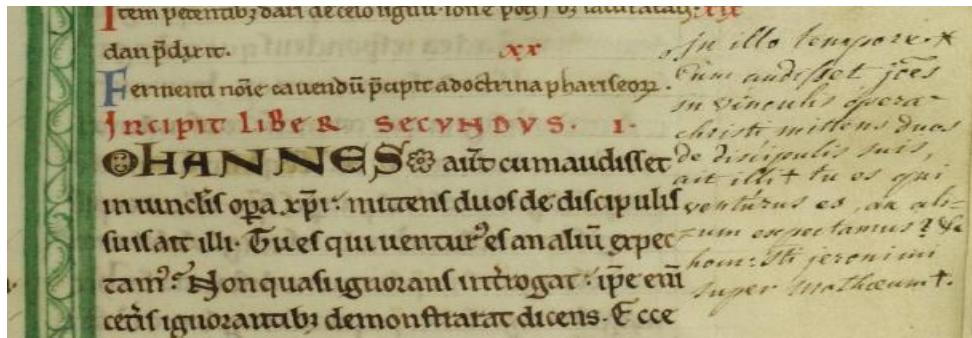 dan p̄dixit. xx
Fermenti noı̄e cauendū p̄cipit a doctrina phariseoꝝ.
Incipit Liber Secvndvs. I.
OHANNES aūt cum audisset
in uinclis op̄a xp̄i: mittens duos de discipulis
suis ait illi. Tu es qui uentur᷒ es an aliū expec
tam᷒? Non quasi ignorans int̄rogat: ip̄e eni̅
cet̄is ignorantibꝫ demonstrarat dicens. Ecce
In illo tempore. +
Cum audisset jōes
in vinculis opera
christi mittens duos
de discipulis suis,
ait illi + tu es qui
venturus es, an ali-
um expectamus? &c
hom: Sti jeronimi
super Mathæum +.